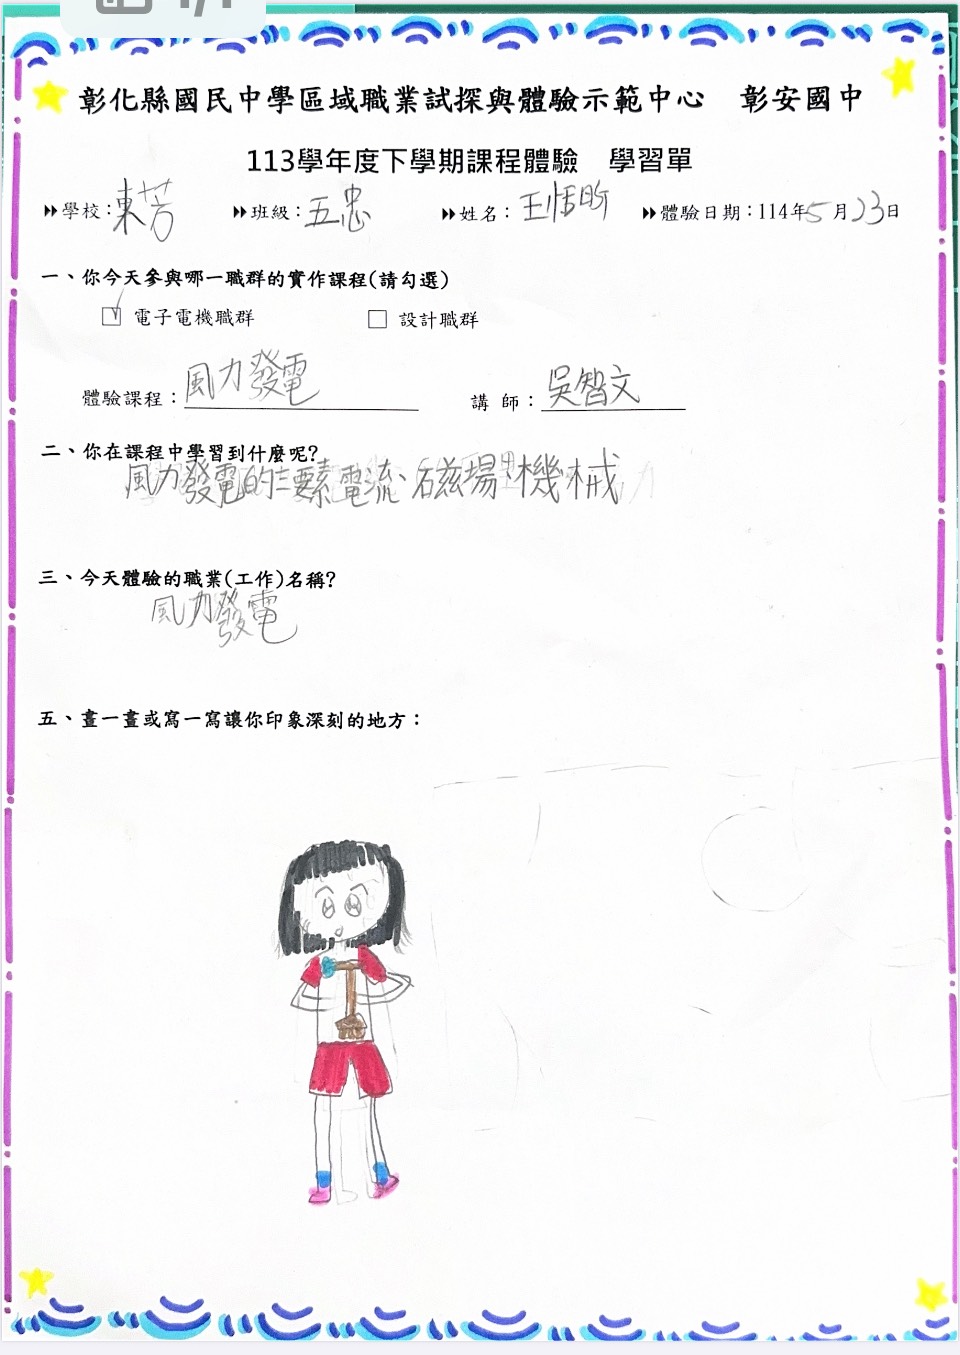 彰化縣國民中學區域職業試探與體驗示範中心 彰安國中
113學年度下學期課程體驗 學習單
學校:東芳 班級:五忠 姓名:王恬昕 體驗日期:114年5月23日
一、你今天參與哪一職群的實作課程(請勾選)
☑ 電子電機職群 □ 設計職群
體驗課程:風力發電 講 師:吳智文
二、你在課程中學習到什麼呢?
風力發電的三要素電流、磁場、機械
三、今天體驗的職業(工作)名稱?
風力發電
五、畫一畫或寫一寫讓你印象深刻的地方: